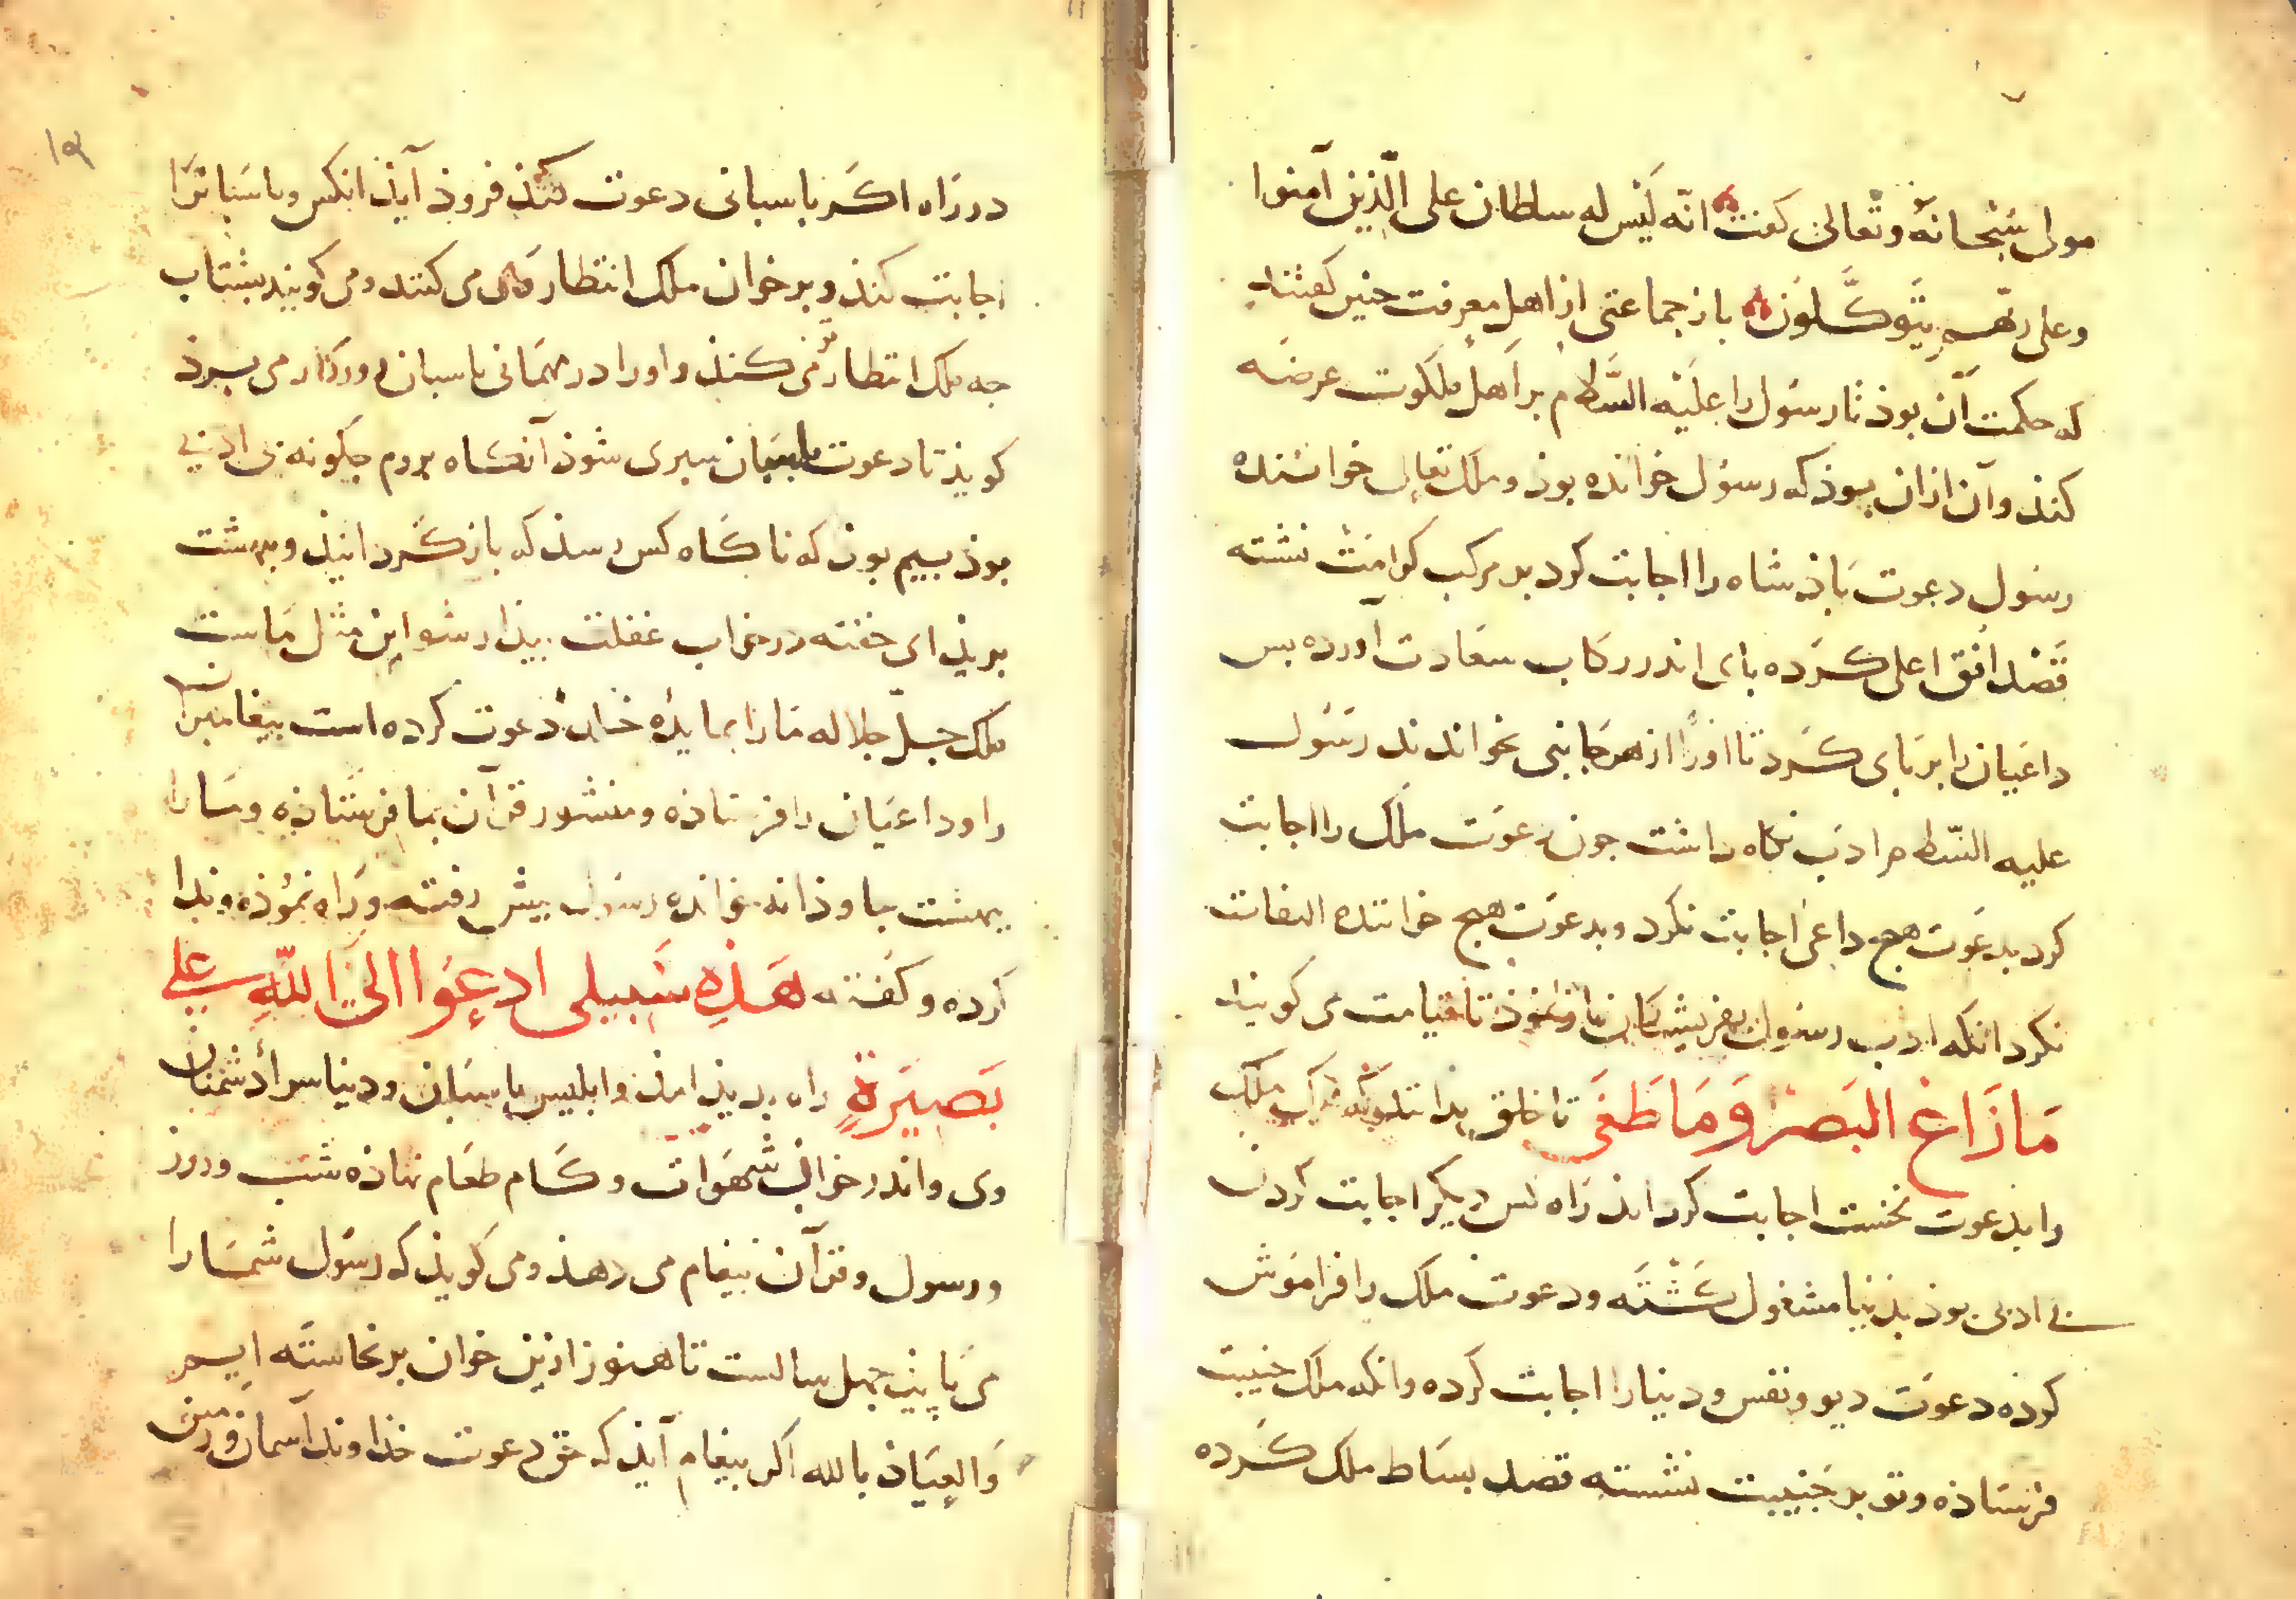 مولی سُبْحانَهُ وتَعالیٰ کفت انّه لَیْس له سلطان علی الّذِین آمنوا
وعلی ربّهم یَتَوکَّلُون باز جماعتی از اهل معرفت جنین کفتند
که حکمت آن بوذ تا رسُول را علَیْه السَّلام بر اَهل ملکوت عرضَه
کنذ وآن ازان بوذ که رسُول خوانده بوذ و ملک تعالی خواننده
رسُول دعوت پاذشاه را اجابت کرد بر مرکب کرامَت نشته
قَصْد افق اعلی کَرده پای اندر رکاب سعَادت آورده بس
داعیَان را بر پای کَرد تا او را از هر جَانبی بخواندند رسُول
علیه السّلام ادَب نکاه داشت جون دعوَت ملَک را اجابت
کرد بدعوَت هیج داعی اجابت نکرد و بدعوَت هیج خواننده التفات
نکرد انکه ادب رسُول بفریشتکان باز نموذ تا قیامت می کویند
مَا زَاغَ البَصَرُ وَمَا طَغَی تا خلق بدانند که هرکه ملک
را بدعوت نخست اجابت کرد اندر راه کس دیکر اجابت کردن
بی ادبی بوذ بدنیا مشغول کَشْتَه ودعوت ملک را فراموش
کرده دعوَت دیو و نفس و دنیا را اجابت کرده وانکه ملک جنیبت
فرستاذه وتو بر جَنیبت نشسته قصد بسَاط ملک کَرده
۱۵
در رَاه اکَر باسبانی دعوت کنذ فروذ آیذ انکس و باسَبانرَا
اجابت کنذ و بر خوان ملک انتظار می کنند و می کویند بشتاب
جه ملک انتظار می کنذ و او را در مهمَانی باسبان روزکار می بیرذ
کویذ تا دعوت باسبَان سبری شوذ آنکَاه بروم جکونه بی ادبی
بوذ بیم بوذ که ناکَاه کس رسذ که بازکَرد انیذ و بهشت
بریذ ای خفته در خواب غفلت بیذار شو این مثل مَاست
ملک جلّ جلاله مَا را بمایدَه خَانُ دعوت کرده است بیغامبران
را و داعیَان را فرستاذه و منشور قرآن بما فرستاذه ومَا را
ببهشت جاوذانه خوانده رسُول بیش رفته ورَاه نموُذه و ندا
کرده و کفته هَذِه سَبِیلی ادعُوا الیَ اللّهِ عَلی
بَصِیرَةٍ راه بدیذ امذ و ابلیس پاسبَان و دنیا سرا دشمنان
وی و اندر خوان شهوَات و کَام طعَام نهاذه شب و روز
و رسول و قرآن بیغام می دهذ و می کویذ که رسُول شمَا را
می پاید جهل سالست تا هنوز ازین خوان برنخاستَه ایم
وَالعِیَاذ بالله اکر بیغام آیذ که حق دعوت خذاوند آسمان و زمین